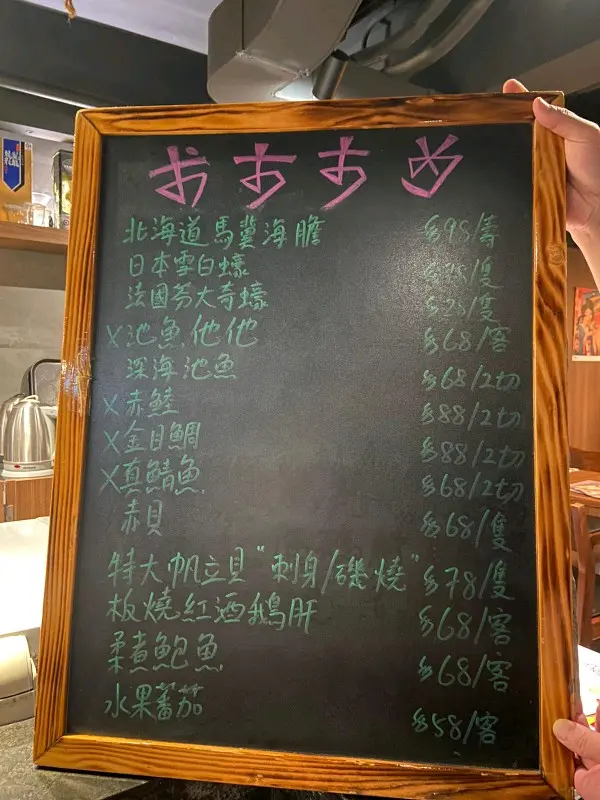 おすすめ
北海道馬糞海膽 $98/壽
日本雪白蠔 $28/隻
法國芬大奇蠔 $28/隻
X池魚他他 $68/客
深海池魚 $68/2切
X赤鯥 $88/2切
X金目鯛 $88/2切
X真鯖魚 $68/2切
赤貝 $68/隻
特大帆立貝"刺身/磯燒" $78/隻
板燒紅酒鵝肝 $68/客
柔煮鮑魚 $68/客
水果蕃茄 $58/客